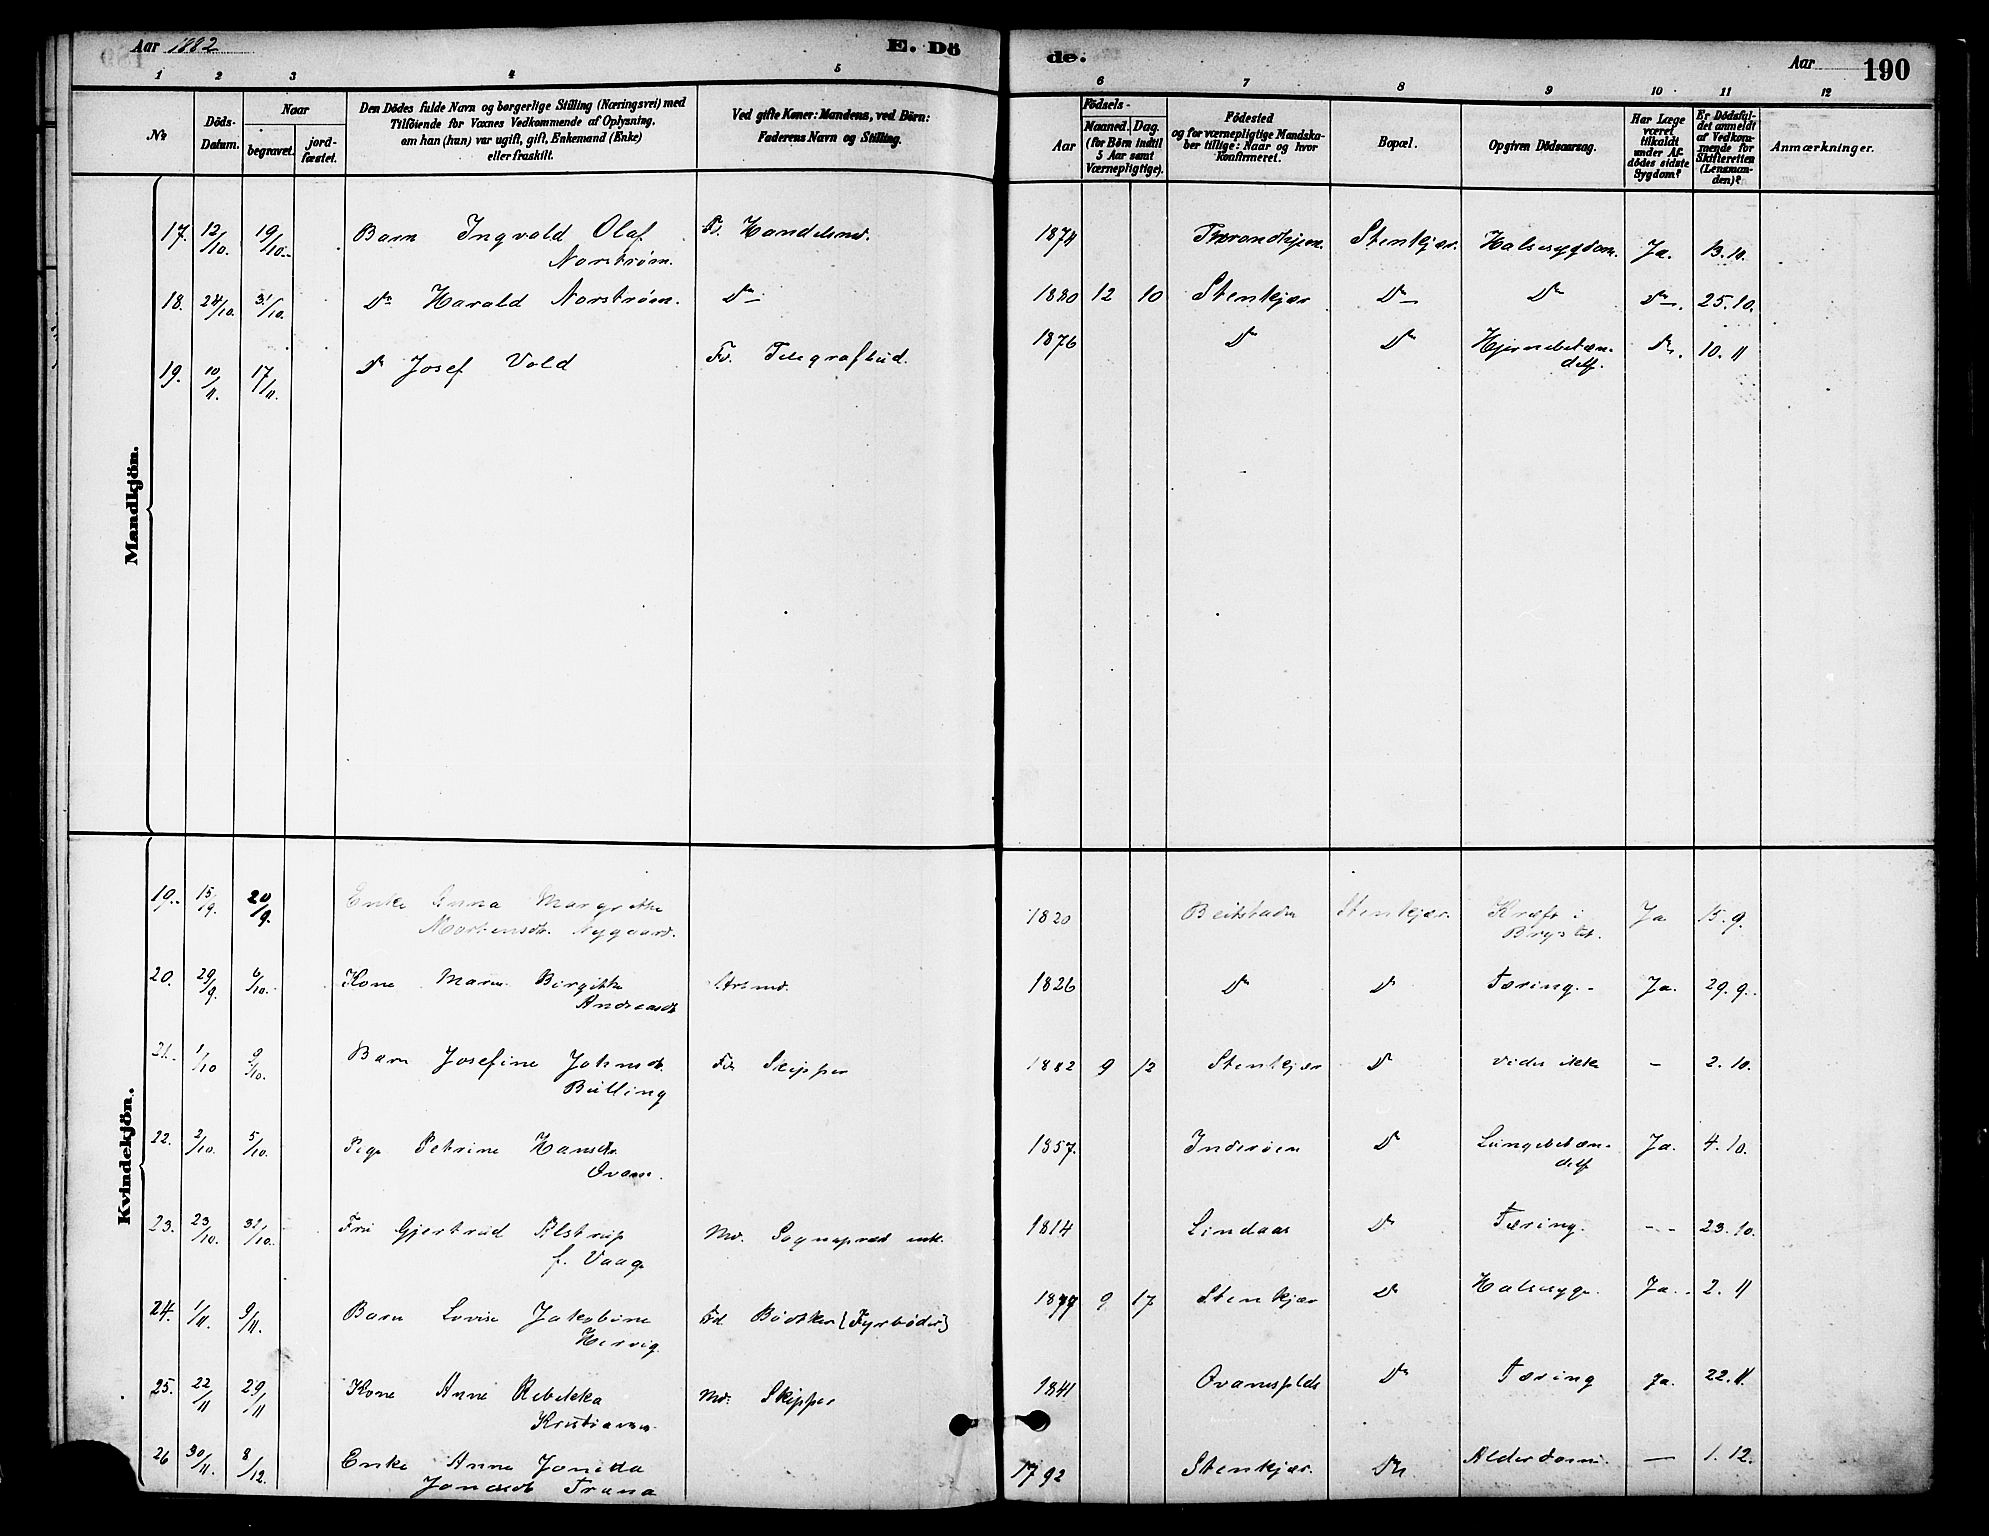 Aar 1882
E. Dö
de.
Aar
190
1 2 3 4 5 6 7 8 9 10 11 12
No
Döds-
Datum.
Naar
begravet.
jord-
fæstet.
Den Dödes fulde Navn og borgerlige Stilling (Næringsvei) med
Tilföiende for Voxnes Vedkommende af Oplysning,
om han (hun) var ugift, gift, Enkemand (Enke)
eller fraskilt.
Ved gifte Koner: Mandens, ved Börn:
Faderens Navn og Stilling.
Födsels-
Aar
Maaned. Dag.
(for Börn indtil
5 Aar samt
Værnepligtige).
Födested
og for værnepligtige Mandska-
ber tillige: Naar og hvor
Konfirmeret.
Bopæl.
Opgiven Dödsaarsag.
Har Læge
været
tilkaldt
under Af-
dödes sidste
Sygdom?
Er Dödsfal-
det anmeldt
af Vedkom-
mende for
Skifteretten
(Lensman-
den)?
Anmærkninger.
Mandkjön.
17. 12/10. 19/10. Barn Ingvald Olaf F. Handelsmd. 1874 Throndhjem Stenkjær. Halssygdom. Ja. 13.10.
Norstrøm.
18. 24/10. 31/10. Do Harald Norstrøm. Do 1880 12 10 Stenkjær Do Do Do 25.10.
19. 10/11. 17/11. Do Josef Vold Fd. Telegrafbud. 1876 Do Do Hjernebetæn- Do. 10.11
delse.
Kvindekjön.
19. 15/9. 20/9. Enke Anna Margrethe 1820 Beitstaden Stenkjær. Kræft i Ja 15.9.
Mortensdt. Nygaard. Brystet.
20. 29/9. 6/10. Kone Maren Birgitte Arbmd. 1826 Do Do Tæring. Ja. 29.9.
Andreasdt
21. 1/10 9/10. Barn Josefine Johnsdt. Fd. Skipper 1882 9 12 Stenkjær Do vides ikke - 2.10.
Bülling
22. 2/10. 5/10. Pige Petrine Hansdt. 1857. Inderøen Do Lungebetæn- Ja. 4.10.
delse
23. 23/10. 31/10. Fru Gjertrud Alstrup Md. Sognepræst 1814 Lindaas Do Tæring. -- 23.10.
f. Vaage
24. 1/11. 9/11. Barn Lovise Jakobine Fd. Bødtker (Fyrbøder) 1879 9 17 Stenkjær Do Halssyge. Ja. 2.11
Hervig
25. 22/11 29/11 Kone Anne Rebekka Md. Skipper 1841 Do Tæring Ja. 22.11.
Kristiansen.
26 30/11. 8/12. Enke Anne Jonida 1792 Stenkjær. Do Alderdom — 1.12.
Jonasdt Trana